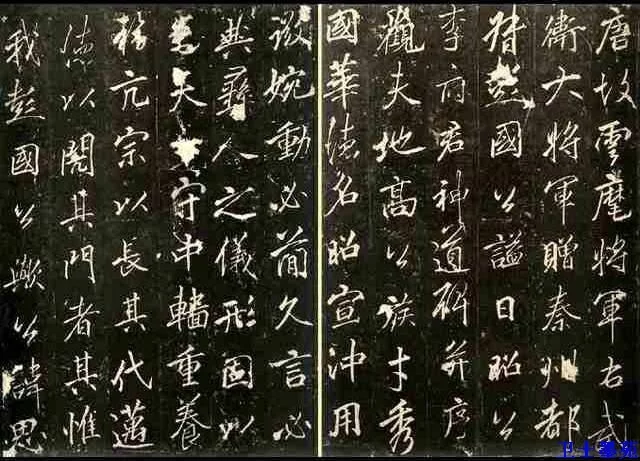 唐故雲麾將軍右武
衛大將軍贈秦州都
督彭國公謚曰昭公
李府君神道碑并序
觀夫地高公族才秀
國華德名昭宣沖用
微婉動必簡久言必
典彝人之儀形國以
夫守中轓重養
務亢宗以長其代邁
德以閎其門者其惟
我彭國公歟公諱思